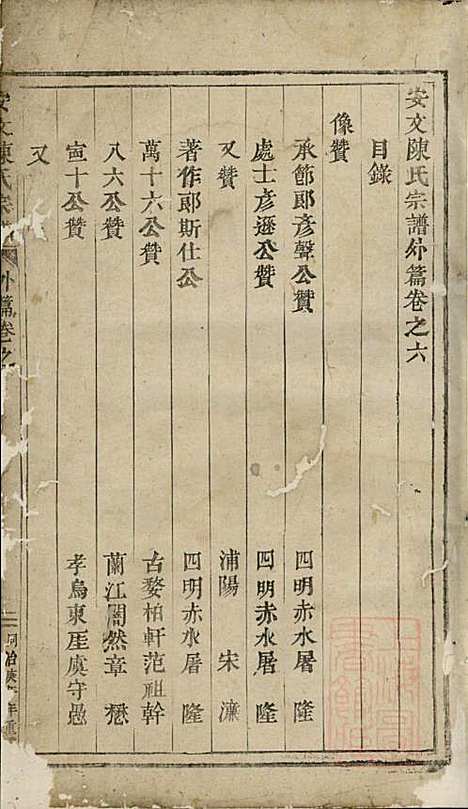 安文陳氏宗譜外篇卷之六
目錄
像贊
承節郎彥聲公贊 四明赤水屠 隆
處士彥遜公贊 四明赤水屠 隆
又贊 浦陽 宋 濂
著作郎斯仕公 四明赤水屠 隆
萬十六公贊 古婺柏軒范祖幹
八六公贊 蘭江闇然章 懋
宣十公贊 孝烏東厓虞守愚
又
安文陳氏宗譜 外篇卷之